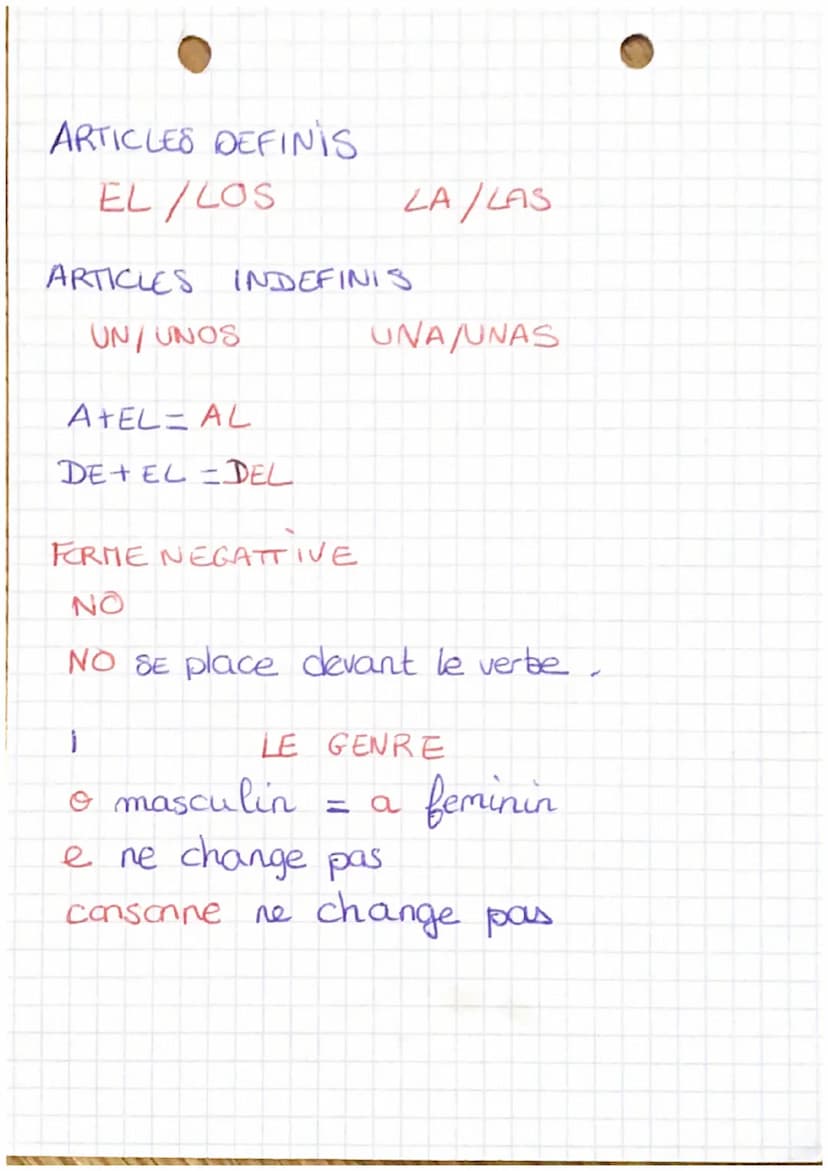 ARTICLES DEFINIS
EL / LOS LA / LAS
ARTICLES INDEFINIS
UN / UNOS UNA / UNAS
A + EL = AL
DE + EL = DEL
FORME NEGATTIVE
NO
NO SE place devant le verbe.
I LE GENRE
o masculin = a feminin
e ne change pas
consonne ne change pas